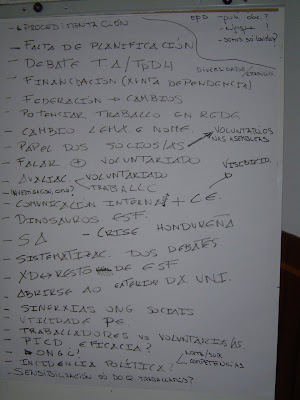 - PROCEDIMENTACIÓN
- FALTA DE PLANIFICACIÓN
- DEBATE TA/TPDH
DIVERSIDADES/
- FINANCIACIÓN (XUNTA DEPENDENCIA)
- FEDERACIÓN → CAMBIOS
- POTENCIAR TRABALLO EN REDE
- CAMBIO LEMA E NOME.
VOLUNTARIOS/AS
NAS ASEMBLEAS
- PAPEL DOS SOCIOS/AS
- FALAR + VOLUNTARIADO
VISIBILID
- AVALIAC. VOLUNTARIADO
TRABALLC
- COMUNICACIÓN INTERNA + C.E.
- DINOSAUROS ESF.
- SA - CRISE HONDUREÑA
- SISTEMATIZAC. DOS DEBATES.
- XD ↔ RESTO DE ESF
- ABRIRSE AO EXTERIOR DA UNI.
- SINERXIAS ONG SOCIAIS
- UTILIDADE PE.
- TRABALLADORES VS VOLUNTARIOS/AS.
- PICD. EFICACIA?
- ONGL?
- INCIDENCIA POLÍTICA?
NORTE/SUR
COMPETENCIAS
- SENSIBILIZACIÓN SÓ DO 2º TRABALLAMOS?